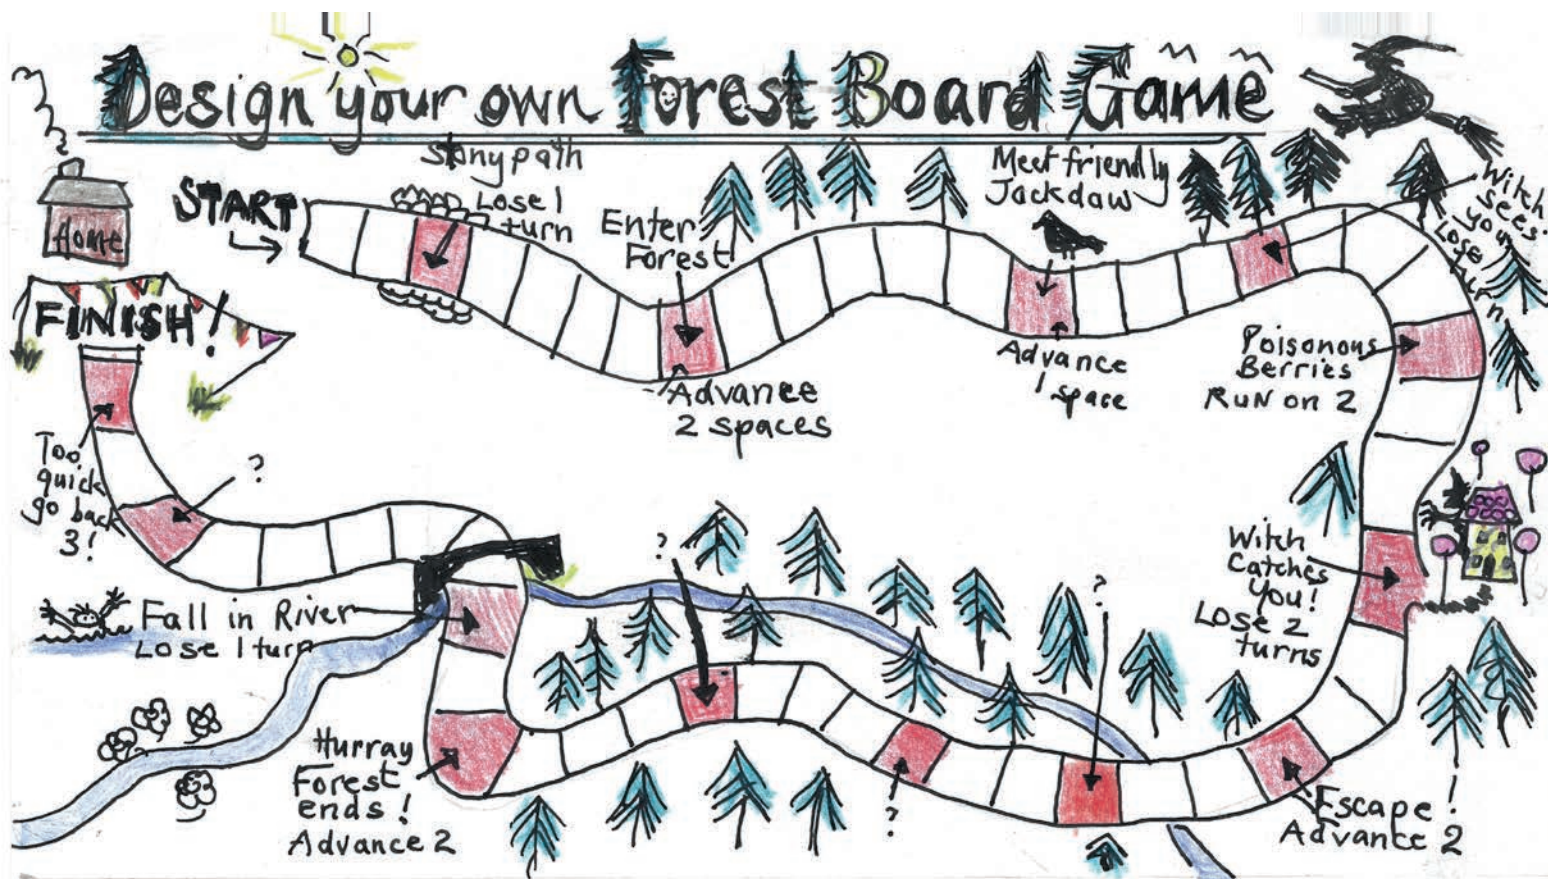 Design your own Forest Board Game
Home
START
Stony path
Lose 1
turn
Enter
Forest
Advance
2 spaces
Meet friendly
Jackdaw
Advance
1 space
Witch
sees
you
Lose
turn
Poisonous
Berries
RUN on 2
Witch
Catches
You!
Lose 2
turns
Escape!
Advance 2
?
?
?
Hurray
Forest
ends!
Advance 2
Fall in River
Lose 1 turn
?
Too
quick
go back
3!
FINISH!